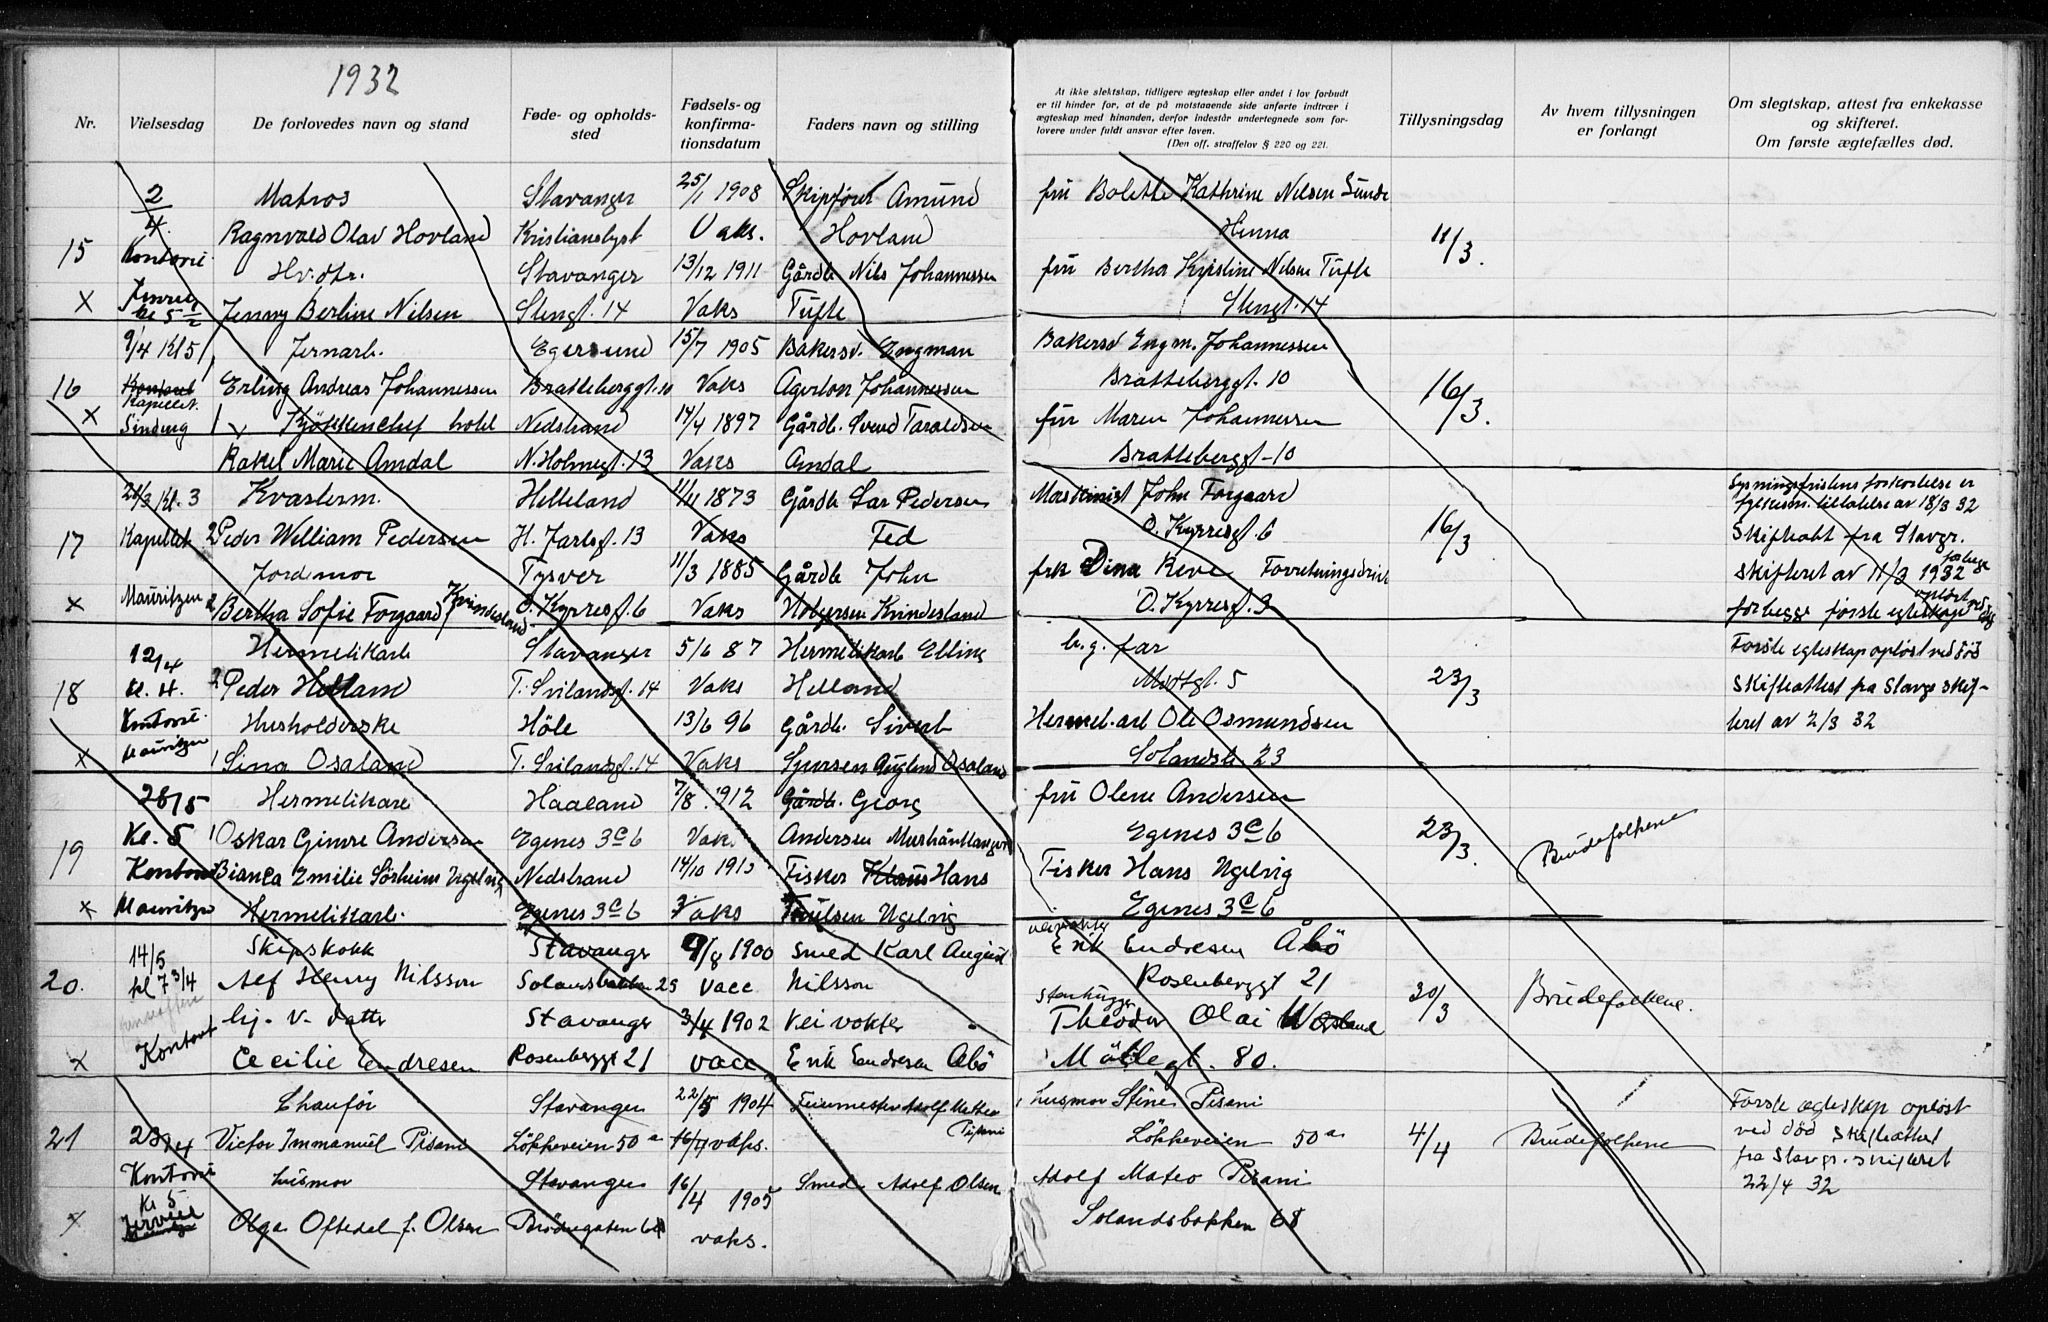 1932
Nr.
Vielsesdag
De forlovedes navn og stand
Føde- og opholds-
sted
Fødsels- og
konfirma-
tionsdatum
Faders navn og stilling
At ikke slektskap, tidligere ægteskap eller andet i lov forbudt
er til hinder for, at de på motstaaende side anførte indtrær i
ægteskap med hinanden, derfor indestår undertegnede som for-
lovere under fuldt ansvar efter loven.
(Den off. straffelov § 220 og 221.
Tillysningsdag
Av hvem tillysningen
er forlangt
Om slegtskap, attest fra enkekasse
og skifteret.
Om første ægtefælles død.
2/4. Matros Stavanger 25/1 1908 Skipfører Amund fru Bolette Kathrine Nilsen Sunde
15 Ragnvald Olav Hovland Kristianslyst Vaks. Hovland Hinna 11/3.
Kontoret Hv.dtr. Stavanger 13/12 1911 Gårdb Nils Johannessen fru Bertha Kristine Nilsen Tufte
X kl 5 1/2 Jenny Berline Nilsen Stengt. 14 Vaks Tufte Stengt. 14
9/4 Kl 5 Jernarb. Egersund 15/7 1905 Bakersv. Engman Bakersv Engm. Johannessen
16 Kontoret Kapellet. Erling Andreas Johannessen Bratteberggt. 10 Vaks Agerton Johannessen Bratteberggt. 10 16/3.
X Sinding 1 Kjøkkenchef hotel Nedstrand 14/4 1897 Gårdb. Svend Taraldsen fru Maren Johannessen
Rakel Marie Amdal N. Holmegt. 13 Vaks Amdal Bratteberggt-10
28/3 Kl. 3 Kvasterm. Helleland 11/11 1873 Gårdb Lar Pedersen Maskinist John Forgaard
17 Kapellet 2 Peder William Pedersen H. Jarlsgt. 13 Vaks Fed O. Kyrresgt. 6 16/3
Jordmor Tysver 11/3 1885 Gårdb John frk Dina Reve Forretningsdriv
X Mauritzen 2 Bertha Sofie Forgaard Kvindesland O. Kyrresgt. 6 Vaks Kvindesland O. Kyrresgt. 3
Lysningsfristens forkortelse er
fylkesm. tillatelse av 18/3 32
Skifteatt fra Stavgr.
skifteret av 11/3 1932
første egteskap
12/4 Hermetikarb Stavanger 5/6 87 Hermetikarb Elling b.g. far
18 Kl. 4. 2 Peder Helland T. Svilandsgt. 14 Vaks Helland 23/3
Kontoret. Husholderske Höle 13/6 96 Gårdb. Sivert Hermet.arb Ole Osmundsen
X Mauritzen 1 Sina Osaland T. Svilandsgt. 14 Vaks Osaland Solandsb 23
Første egteskap opløst ved død
Skifteattest fra Stavgr skif-
teret av 2/3 32
28/5 Hermetikarb Haaland 7/8 1912 Gårdb. Georg fru Olene Andersen
19 Kl. 5 1 Oskar Gimre Andersen Egenes 3c 6 Vaks Andersen Murhåndlanger Egenes 3c 6 23/3. Brudefolkene
Kontoret Bianca Emilie Sörheim Ugelvig Nedstrand 14/10 1913 Fisker Klaus Hans Fisker Hans Ugelvig
X Mauritzen Hermetikarb. Egenes 3c 6 Vaks Ugelvig Egenes 3c 6
14/5 Skipskokk Stavanger 9/8 1900 Smed Karl August Veivokter Erik Endresen Åbö
20. kl 7 3/4 Alf Henry Nilsson Solandsbakken 23 vacc Nilsson Rosenberggt 21 30/3 Brudefolkene.
hj. v. datter Stavanger 3/4 1902 Veivokter Stenhugger Theodor Olai Worsland
X Kontoret Cecilie Endresen Rosenberggt 21 vacc Erik Endresen Åbö Möllegt. 80.
Chauför Stavanger 22/5 1904 Feiermester Adolf Matteo Pisani husmor Stine Pisani
21 23/4 Victor Immanuel Pisani Løkkeveien 50 a 16/4 vaks. Løkkeveien 50 a 4/4 Brudefolkene
Kontoret husmor Stavanger 16/4 1905 Smed Adolf Olsen Adolf Mateo Pisani
X Kl 5 Olga Oftedal f. Olsen vaks. Solandsbakken 68
Første egteskap opløst
ved död skifteattest
fra Stavgr. skifteret
22/4 32